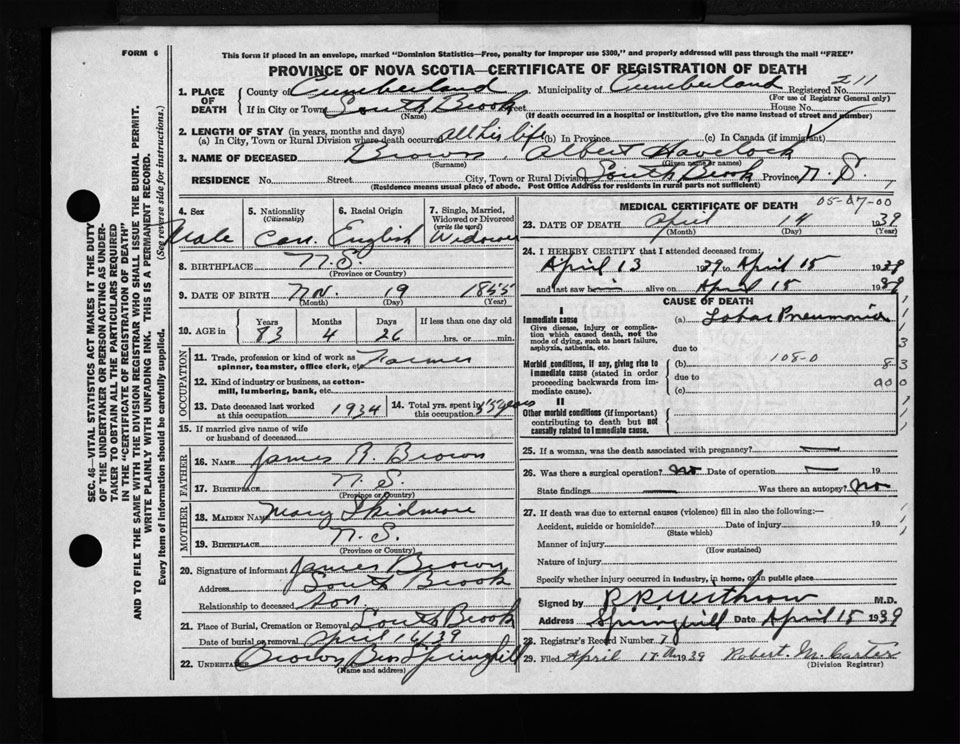 FORM 6
This form if placed in an envelope, marked "Dominion Statistics—Free, penalty for improper use $300," and properly addressed will pass through the mail "FREE"
PROVINCE OF NOVA SCOTIA—CERTIFICATE OF REGISTRATION OF DEATH
SEC. 46—VITAL STATISTICS ACT MAKES IT THE DUTY
OF THE UNDERTAKER OR PERSON ACTING AS UNDER-
TAKER TO OBTAIN ALL THE PARTICULARS REQUIRED
IN THE "CERTIFICATE OF REGISTRATION OF DEATH"
AND TO FILE THE SAME WITH THE DIVISION REGISTRAR WHO SHALL ISSUE THE BURIAL PERMIT.
WRITE PLAINLY WITH UNFADING INK. THIS IS A PERMANENT RECORD.
Every item of information should be carefully supplied. (See reverse side for instructions.)
1. PLACE OF DEATH
County of Cumberland Municipality of Cumberland Registered No. 211
(For use of Registrar General only)
If in City or Town South Brook Street House No.
(Name) (If death occurred in a hospital or institution, give the name instead of street and number)
2. LENGTH OF STAY (in years, months and days)
(a) In City, Town or Rural Division where death occurred all his life (b) In Province (c) In Canada (if immigrant)
3. NAME OF DECEASED Brown, Albert Havelock
(Surname) (Given name or names)
RESIDENCE No. Street City, Town or Rural Division South Brook Province N. S.
(Residence means usual place of abode. Post Office Address for residents in rural parts not sufficient)
4. Sex Male
5. Nationality (Citizenship) Can.
6. Racial Origin English
7. Single, Married, Widowed or Divorced (write the word) Widower
8. BIRTHPLACE N. S.
(Province or Country)
9. DATE OF BIRTH Nov. 19 1855
(Month) (Day) (Year)
10. AGE in Years 83 Months 4 Days 26 If less than one day old hrs. or min.
OCCUPATION
11. Trade, profession or kind of work as spinner, teamster, office clerk, etc. Farmer
12. Kind of industry or business, as cotton-mill, lumbering, bank, etc.
13. Date deceased last worked at this occupation 1934
14. Total yrs. spent in this occupation 55 years
15. If married give name of wife or husband of deceased
FATHER
16. NAME James R. Brown
17. BIRTHPLACE N. S.
(Province or Country)
MOTHER
18. MAIDEN NAME Mary Skidmore
19. BIRTHPLACE N. S.
(Province or Country)
20. Signature of informant James Brown
Address South Brook
Relationship to deceased Son
21. Place of Burial, Cremation or Removal South Brook
Date of burial or removal April 16/39
22. UNDERTAKER Brown Bros Springhill
(Name and address)
MEDICAL CERTIFICATE OF DEATH 05-07-00
23. DATE OF DEATH April 14 1939
(Month) (Day) (Year)
24. I HEREBY CERTIFY that I attended deceased from:
April 13 1939 to April 15 1939
and last saw him alive on April 15 1939
CAUSE OF DEATH
I
Immediate cause
Give disease, injury or complication which caused death, not the mode of dying, such as heart failure, asphyxia, asthenia, etc.
(a) Lobar Pneumonia
due to
Morbid conditions, if any, giving rise to immediate cause (stated in order proceeding backwards from immediate cause).
(b) 108-0
due to
(c)
II
Other morbid conditions (if important) contributing to death but not causally related to immediate cause.
25. If a woman, was the death associated with pregnancy?
26. Was there a surgical operation? no Date of operation 19
State findings Was there an autopsy? No
27. If death was due to external causes (violence) fill in also the following:—
Accident, suicide or homicide? Date of injury 19
(State which)
Manner of injury
(How sustained)
Nature of injury
Specify whether injury occurred in industry, in home, or in public place
Signed by R R Withrow M.D.
Address Springhill Date April 15 1939
28. Registrar's Record Number 7
29. Filed April 17th 1939 Robert. M. Carter
(Division Registrar)